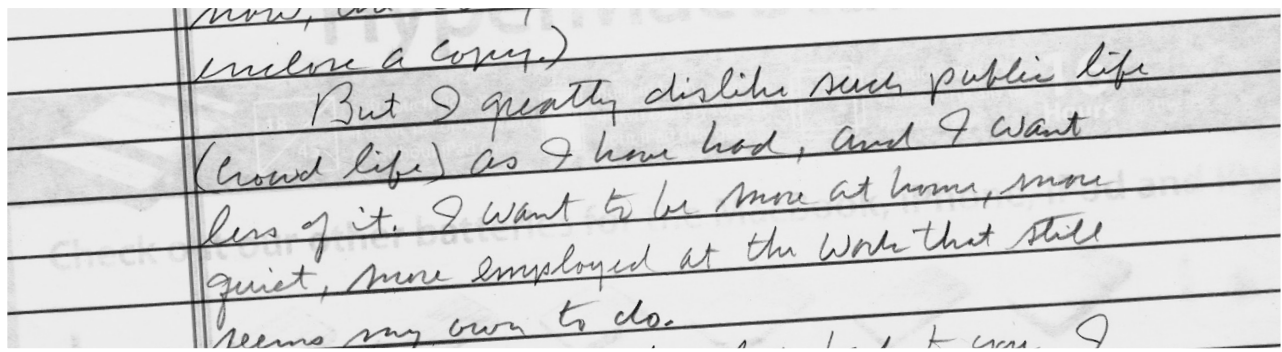 now,
enclose a copy.)
But I greatly dislike such public life
(crowd life) as I have had, and I want
less of it. I want to be more at home, more
quiet, more employed at the work that still
seems my own to do.
to you. I